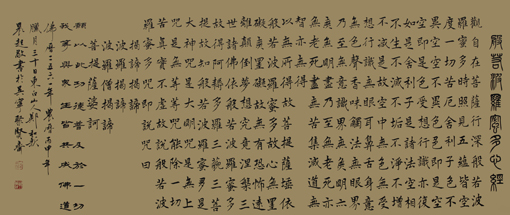 般若波羅蜜多心經
觀自在菩薩行深般若波
羅蜜多時照見五蘊皆空
度一切苦厄舍利子色不
異空空不異色色即是空
空即是色受想行識亦復
如是舍利子是諸法空相
不生不滅不垢不淨不增
不減是故空中無色無受
想行識無眼耳鼻舌身意
無色聲香味觸法無眼界
乃至無意識界無無明亦
無無明盡乃至無老死亦
無老死盡無苦集滅道無
智亦無得
以無所得故菩提薩埵依
般若波羅蜜多故心無罣
礙無罣礙故無有恐怖遠
離顛倒夢想究竟涅槃三
世諸佛依般若波羅蜜多
故得阿耨多羅三藐三菩
提故知般若波羅蜜多是
大神咒是大明咒是無上
咒是無等等咒能除一切
苦真實不虛故說般若波
羅蜜多咒即說咒曰
揭諦揭諦
波羅揭諦
波羅僧揭諦
菩提薩婆訶
願以此功德普及於一切
我等與眾生皆共成佛道
佛曆二五六一年農曆丙申年
臘月三十日東白山人鄭